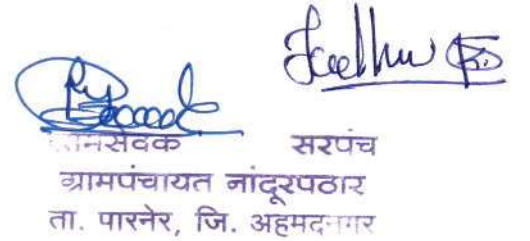 ग्रामसेवक सरपंच
ग्रामपंचायत नांदूरपठार
ता. पारनेर, जि. अहमदनगर